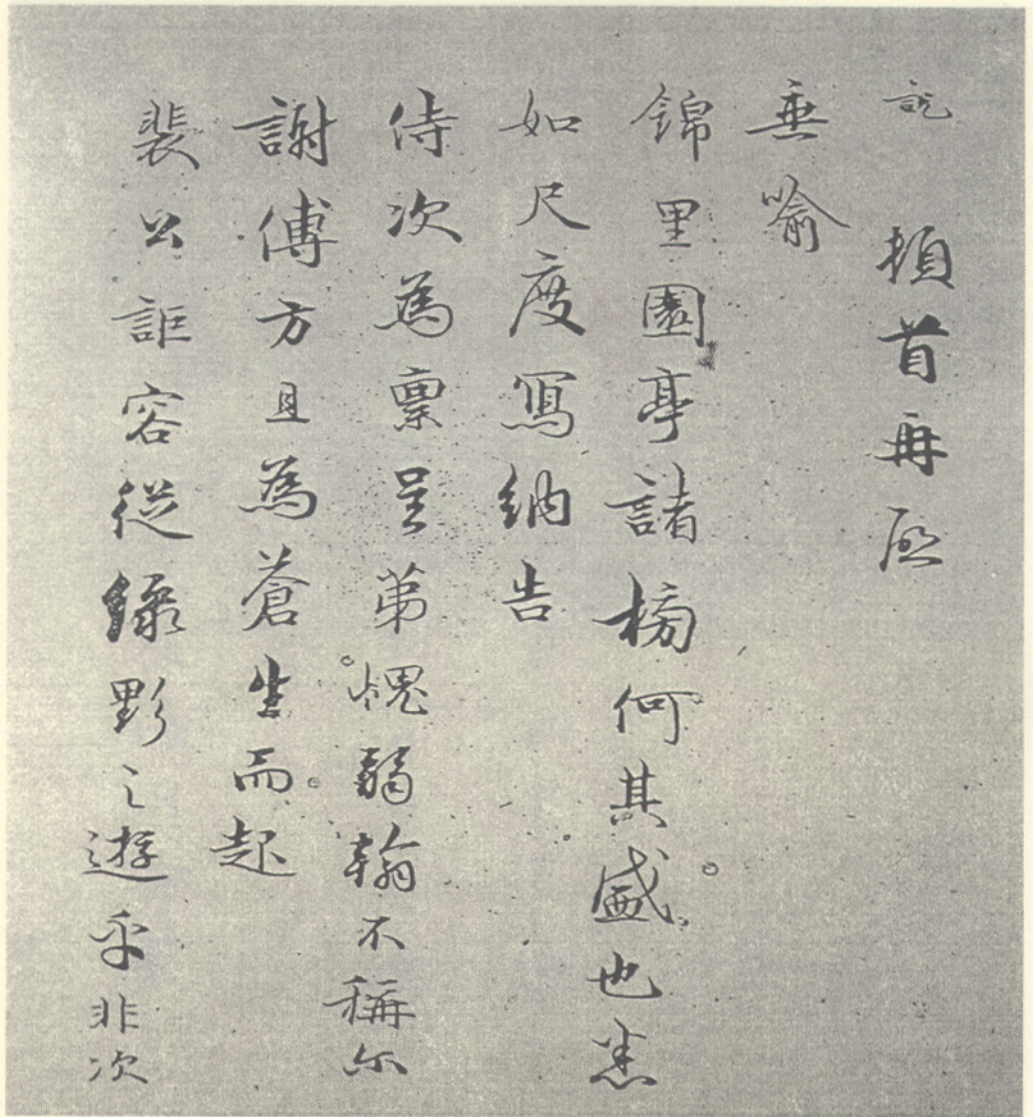 說 頓首再啟
垂喻
錦里園亭諸榜何其盛也悉
如尺度寫納告
侍次為稟呈第愧弱翰不稱尔
謝傅方且為蒼生而起
裴公詎容從緑野之遊乎非次